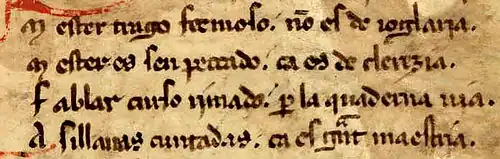 M ester trago fermoso. nõ es de ioglaria.
M ester es sen peccado. ca es de clerezia.
F ablar curso rimado. p la quaderna uia.
A sillauas cuntadas. ca es gñt maestria.